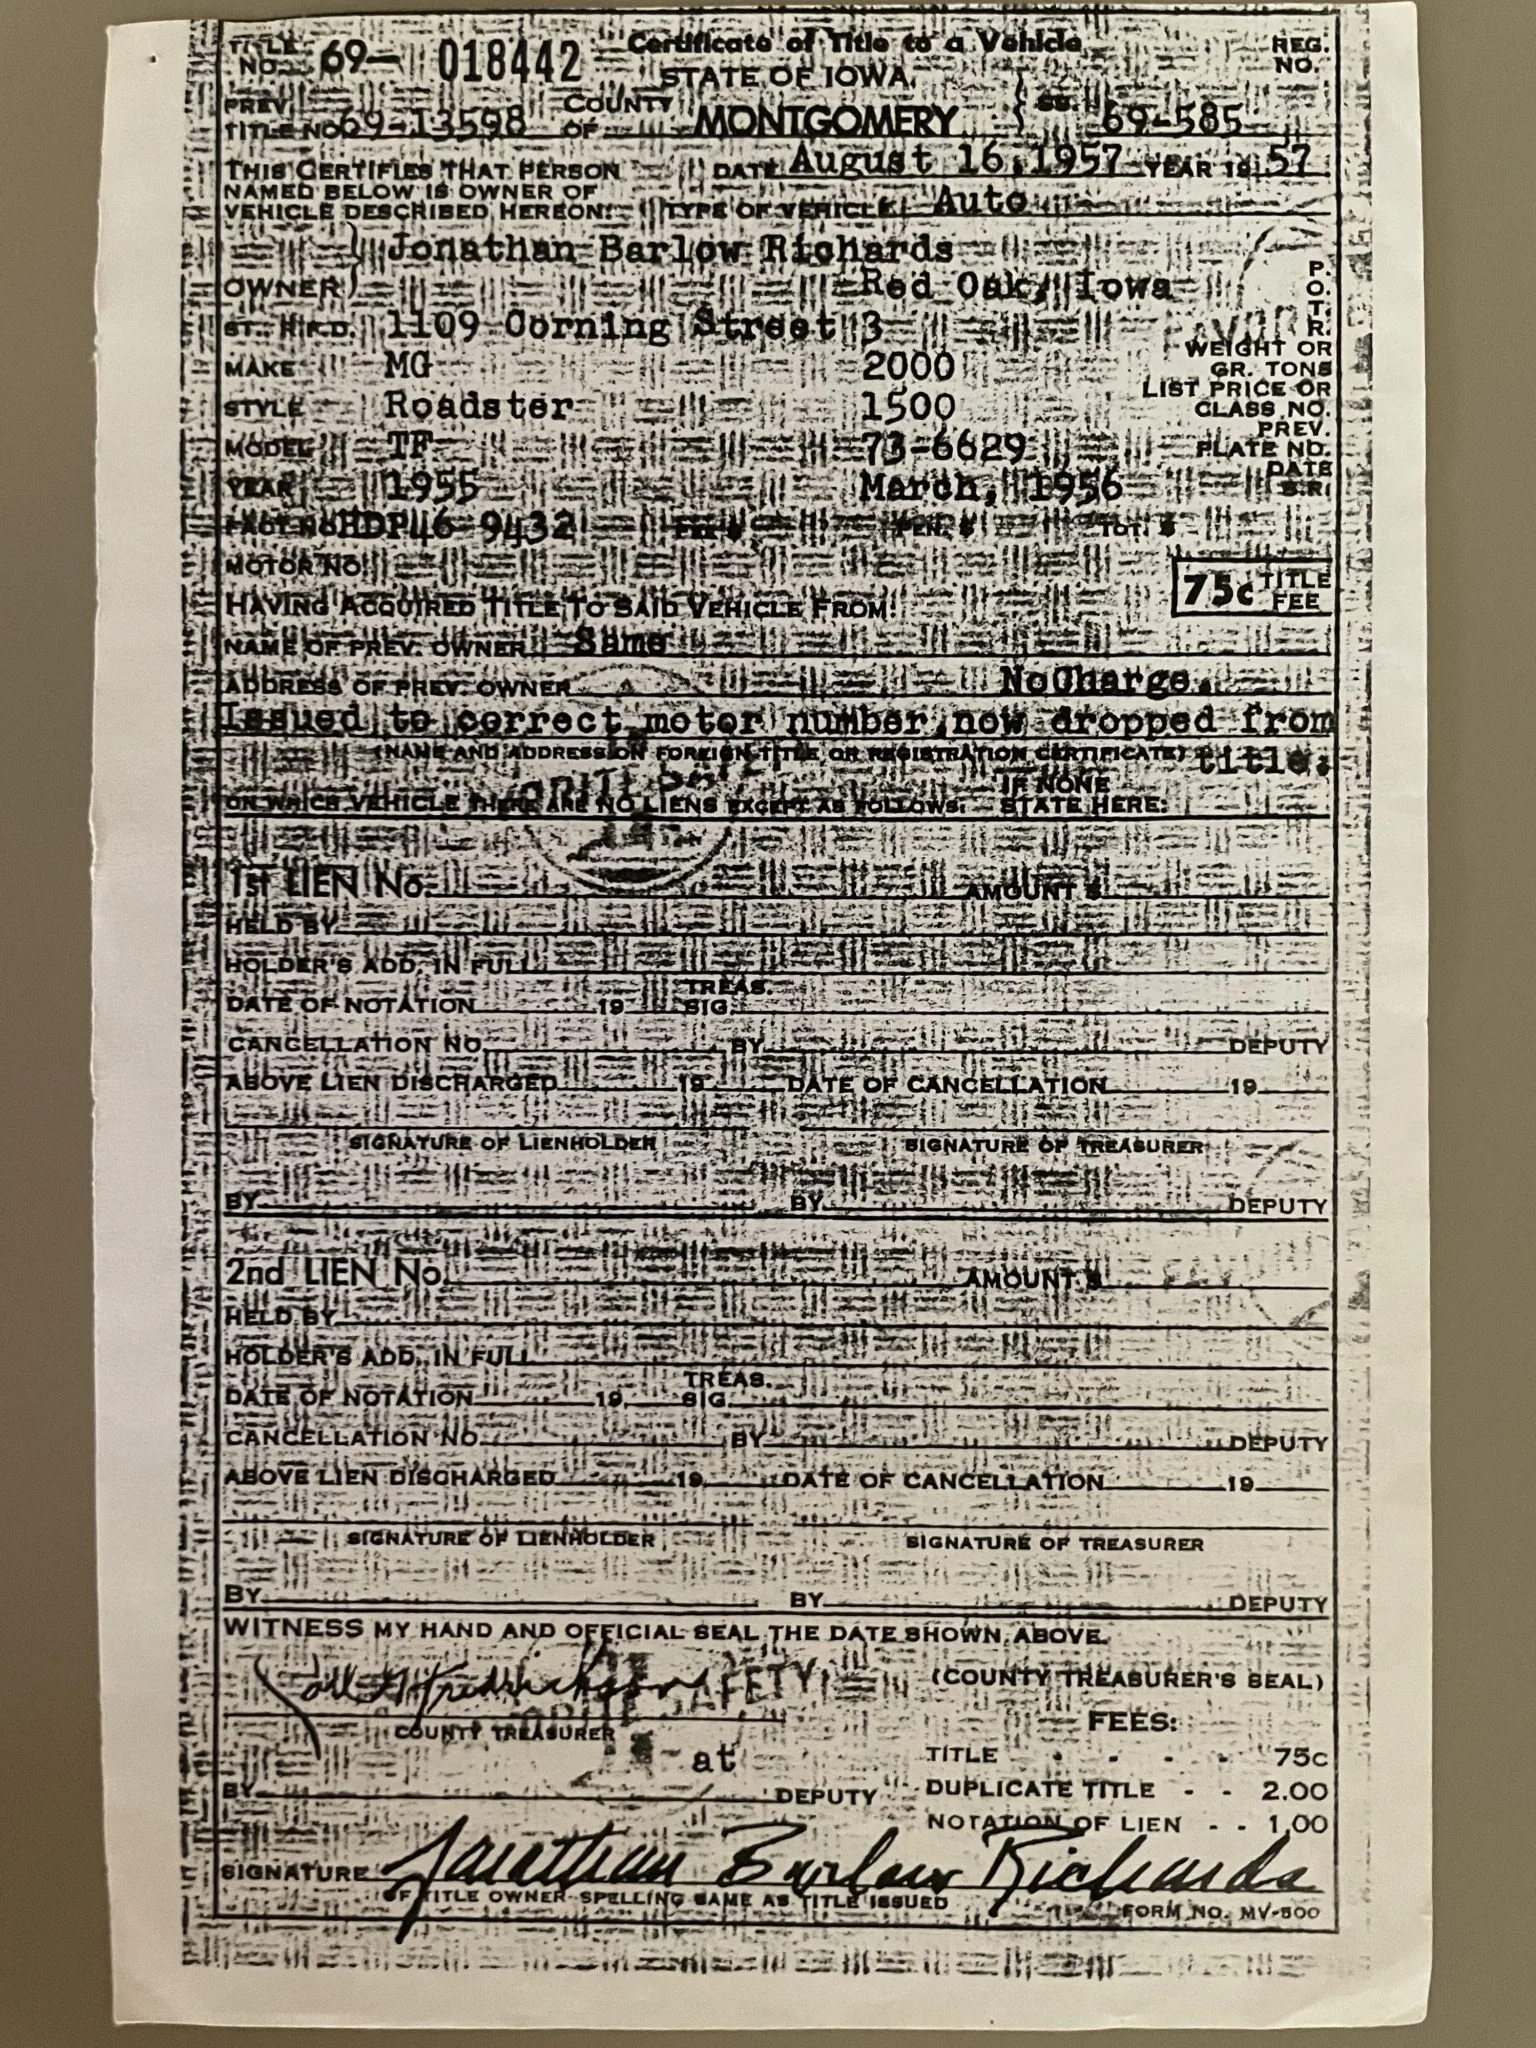 TITLE NO. 69- 018442 Certificate of Title to a Vehicle REG. NO.
STATE OF IOWA
PREV. TITLE NO. 69-13598 COUNTY OF MONTGOMERY } SS. 69-585
THIS CERTIFIES THAT PERSON DATE August 16, 1957 YEAR 19 57
NAMED BELOW IS OWNER OF
VEHICLE DESCRIBED HEREON: TYPE OF VEHICLE Auto
Jonathan Barlow Richards
OWNER } Red Oak, Iowa P. O. T. R.
ST., R.F.D. 1109 Corning Street 3
MAKE MG 2000 WEIGHT OR GR. TONS
STYLE Roadster 1500 LIST PRICE OR CLASS NO.
MODEL TF 73-6629 PREV. PLATE NO.
YEAR 1955 March, 1956 DATE S.R.
FACT NO. HDP46 9432 PEN. $ TOT. $
MOTOR NO. 75c TITLE FEE
HAVING ACQUIRED TITLE TO SAID VEHICLE FROM:
NAME OF PREV. OWNER Same
ADDRESS OF PREV. OWNER No Charge.
Issued to correct motor number, now dropped from
(NAME AND ADDRESS ON FOREIGN TITLE OR REGISTRATION CERTIFICATE) title.
ON WHICH VEHICLE THERE ARE NO LIENS EXCEPT AS FOLLOWS: IF NONE STATE HERE:
1st LIEN No. AMOUNT $
HELD BY
HOLDER'S ADD. IN FULL
DATE OF NOTATION 19 TREAS. SIG.
CANCELLATION NO. BY DEPUTY
ABOVE LIEN DISCHARGED 19 DATE OF CANCELLATION 19
SIGNATURE OF LIENHOLDER SIGNATURE OF TREASURER
BY BY DEPUTY
2nd LIEN No. AMOUNT $
HELD BY
HOLDER'S ADD. IN FULL
DATE OF NOTATION 19 TREAS. SIG.
CANCELLATION NO. BY DEPUTY
ABOVE LIEN DISCHARGED 19 DATE OF CANCELLATION 19
SIGNATURE OF LIENHOLDER SIGNATURE OF TREASURER
BY BY DEPUTY
WITNESS MY HAND AND OFFICIAL SEAL THE DATE SHOWN ABOVE.
Fredrickson SAFETY (COUNTY TREASURER'S SEAL)
COUNTY TREASURER FEES:
at TITLE - - - - 75c
BY DEPUTY DUPLICATE TITLE - - 2.00
NOTATION OF LIEN - - 1.00
SIGNATURE Jonathan Barlow Richards
OF TITLE OWNER-SPELLING SAME AS TITLE ISSUED FORM NO. MV-500